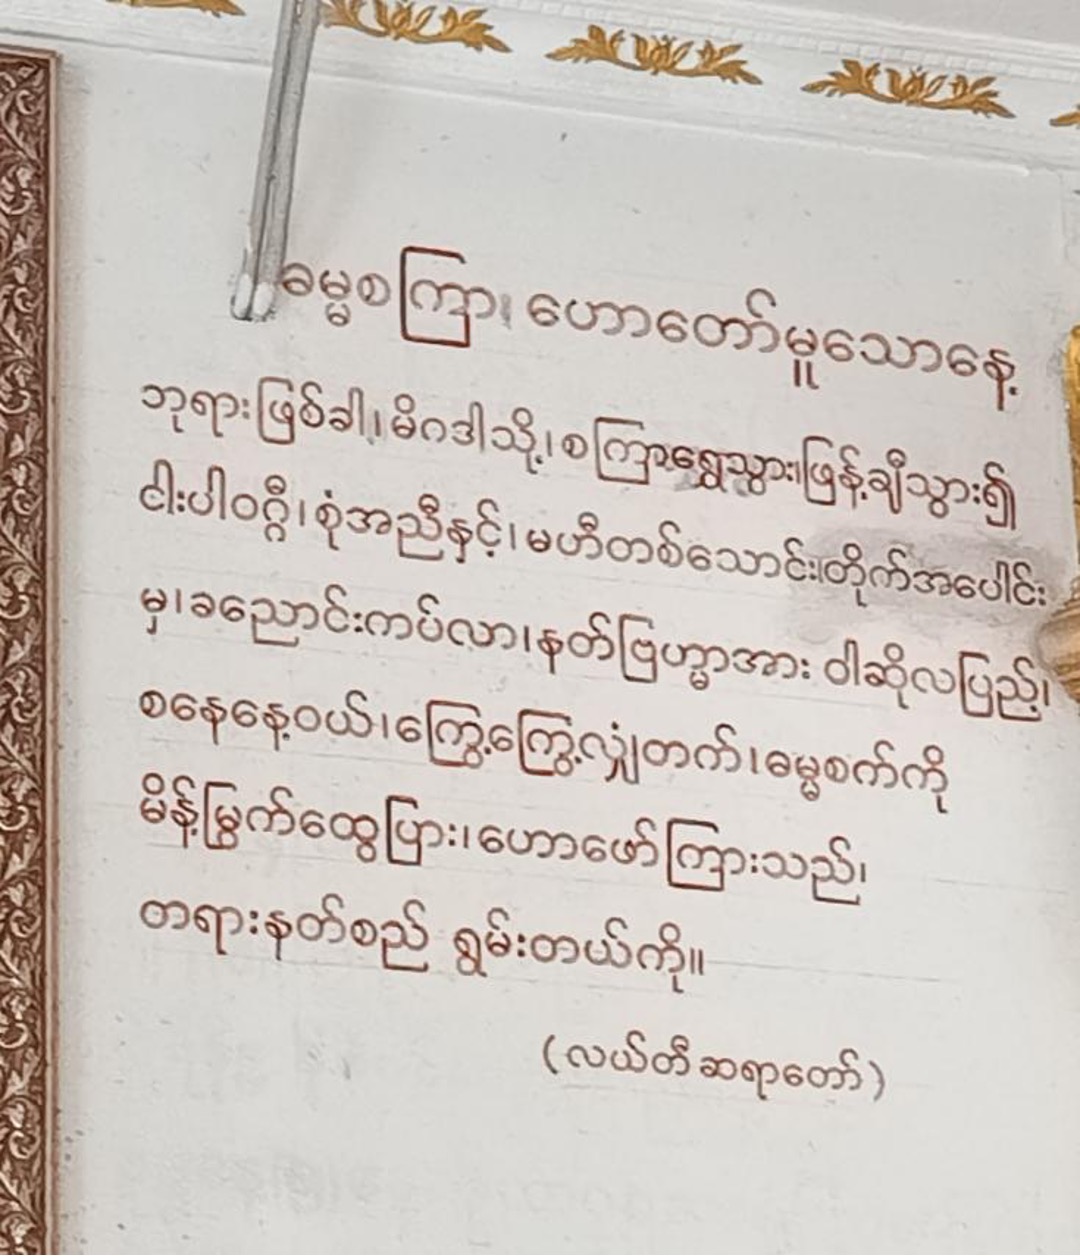 ဓမ္မစကြာ၊ ဟောတော်မူသောနေ့
ဘုရားဖြစ်ခါ၊မိဂဒါသို့၊စကြာရွှေသွား၊ဖြန့်ချီသွား၍
ငါးပါဝဂ္ဂီ၊စုံအညီနှင့်၊မဟီတစ်သောင်း၊တိုက်အပေါင်း
မှ၊ခညောင်းကပ်လာ၊နတ်ဗြဟ္မာအား ဝါဆိုလပြည့်၊
စနေနေ့ဝယ်၊ကြွေ့ကြွေ့လျှံတက်၊ဓမ္မစက်ကို
မိန့်မြွက်ထွေပြား၊ဟောဖော်ကြားသည်၊
တရားနတ်စည် ရွှမ်းတယ်ကို။
(လယ်တီဆရာတော်)